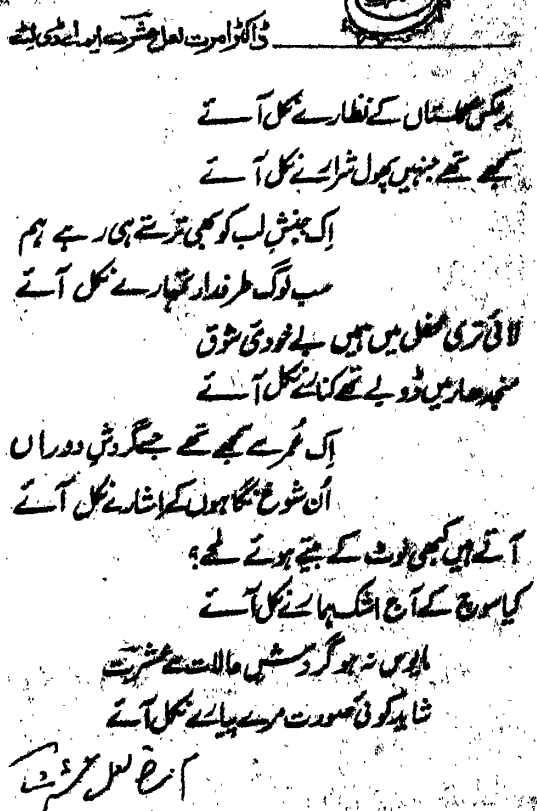 ڈاکٹر امرت لعل عشرتؔ ایم اے ڈی لٹ
برعکس گلستاں کے نظارے نکل آئے
سمجھے تھے جنہیں پھول شرارے نکل آئے
اِک جنبشِ لب کو بھی ترستے ہی رہے ہم
سب لوگ طرفدار تمہارے نکل آئے
لائی تری محفل میں ہمیں بے خودیٔ شوق
منجدھار میں ڈوبے تھے کنارے نکل آئے
اِک عُمر سے سمجھے تھے جسے گردشِ دوراں
اُن شوخ نگاہوں کے اشارے نکل آئے
آتے ہیں کبھی لوٹ کے بیتے ہوئے لمحے؟
کیا سوچ کے آج اشک ہمارے نکل آئے
مایوس نہ ہو گردشِ حالات سے عشرتؔ
شاید کوئی صورت مرے پیارے نکل آئے
امرت لعل عشرت